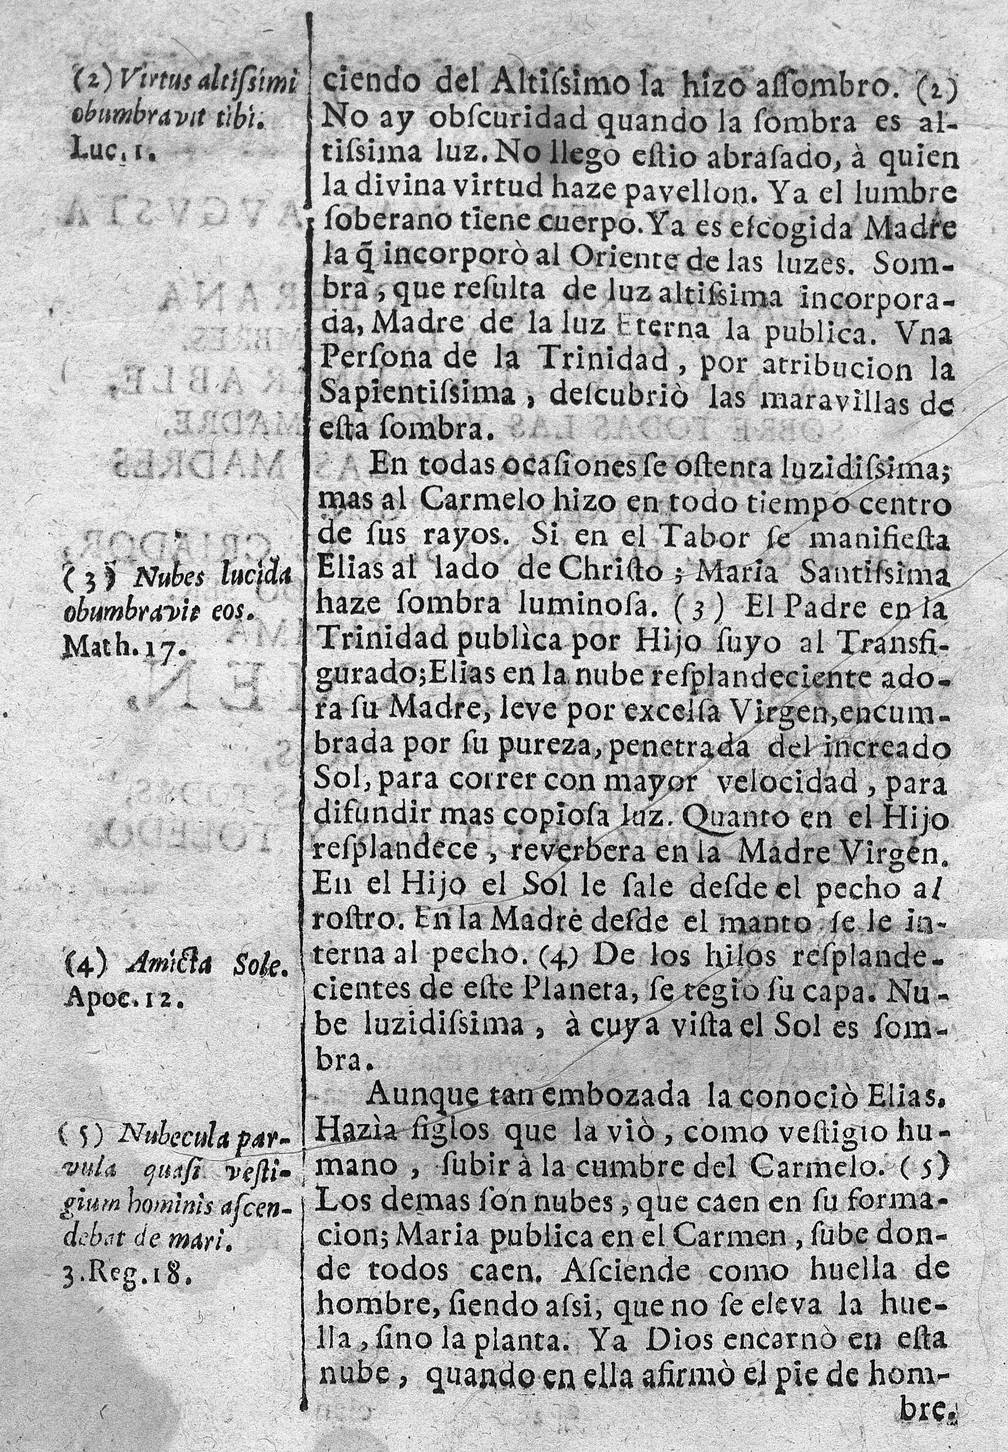 (2) Virtus altiſsimi
obumbravit tibi.
Luc. 1.
ciendo del Altiſsimo la hizo aſſombro. (2)
No ay obſcuridad quando la ſombra es al-
tiſsima luz. No llegò eſtio abraſado, à quien
la divina virtud haze pavellon. Ya el lumbre
ſoberano tiene cuerpo. Ya es eſcogida Madre
la q̃ incorporò al Oriente de las luzes. Som-
bra, que reſulta de luz altiſsima incorpora-
da, Madre de la luz Eterna la publica. Vna
Perſona de la Trinidad, por atribucion la
Sapientiſsima, deſcubriò las maravillas de
eſta ſombra.
En todas ocaſiones ſe oſtenta luzidiſsima;
mas al Carmelo hizo en todo tiempo centro
de ſus rayos. Si en el Tabor ſe manifieſta
Elias al lado de Chriſto; Maria Santiſsima
haze ſombra luminoſa. (3) El Padre en la
Trinidad publica por Hijo ſuyo al Transfi-
gurado; Elias en la nube reſplandeciente ado-
ra ſu Madre, leve por excelſa Virgen, encum-
brada por ſu pureza, penetrada del increado
Sol, para correr con mayor velocidad, para
difundir mas copioſa luz. Quanto en el Hijo
reſplandece, reverbera en la Madre Virgen.
En el Hijo el Sol le ſale deſde el pecho al
roſtro. En la Madre deſde el manto ſe le in-
terna al pecho. (4) De los hilos reſplande-
cientes de eſte Planeta, ſe tegiò ſu capa. Nu-
be luzidiſsima, à cuya viſta el Sol es ſom-
bra.
(3) Nubes lucida
obumbravit eos.
Math. 17.
(4) Amicta Sole.
Apoc. 12.
Aunque tan embozada la conociò Elias.
Hazìa ſiglos que la viò, como veſtigio hu-
mano, ſubir à la cumbre del Carmelo. (5)
Los demas ſon nubes, que caen en ſu forma-
cion; Maria publica en el Carmen, ſube don-
de todos caen. Aſciende como huella de
hombre, ſiendo aſsi, que no ſe eleva la hue-
lla, ſino la planta. Ya Dios encarnò en eſta
nube, quando en ella afirmò el pie de hom-
bre.
(5) Nubecula par-
vula quaſi veſti-
gium hominis aſcen-
debat de mari.
3. Reg. 18.